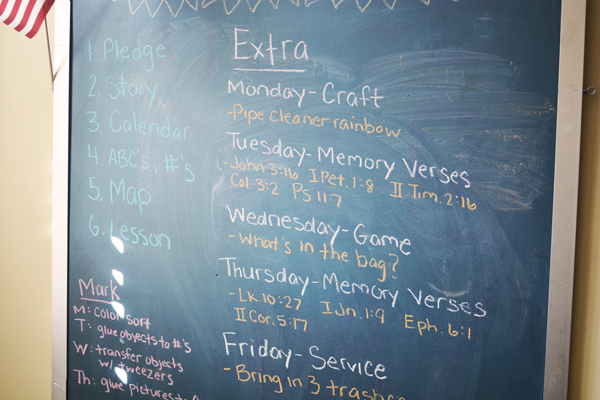 1. Pledge
2. Story
3. Calendar
4. ABC's, #'s
5. Map
6. Lesson
Mark
M: color sort
T: glue objects to #'s
W: transfer objects
w/ tweezers
Th: glue pictures to
Extra
Monday-Craft
-Pipe cleaner rainbow
Tuesday-Memory Verses
-John 3:16 I Pet. 1:8 II Tim. 2:16
Col. 3:2 Ps 11:7
Wednesday-Game
-What's in the bag?
Thursday-Memory Verses
-Lk. 10:27 I Jn. 1:9 Eph. 6:1
II Cor. 5:17
Friday-Service
-Bring in 3